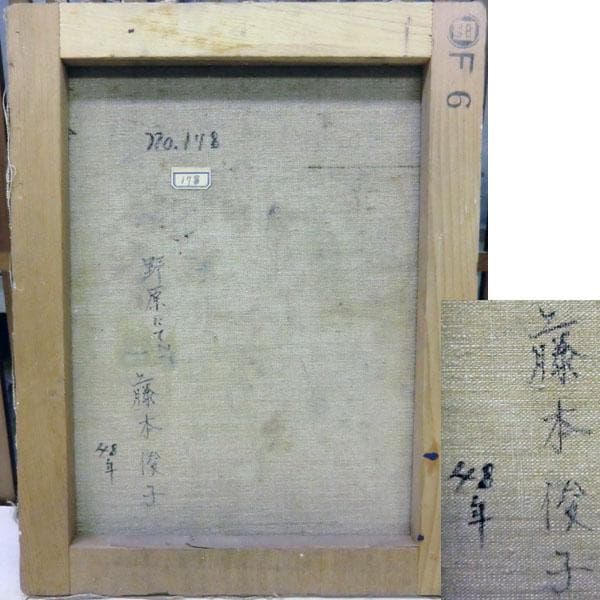 SB
F 6
No.178
178
野原にて
藤本俊子
48年
藤本俊子
48年